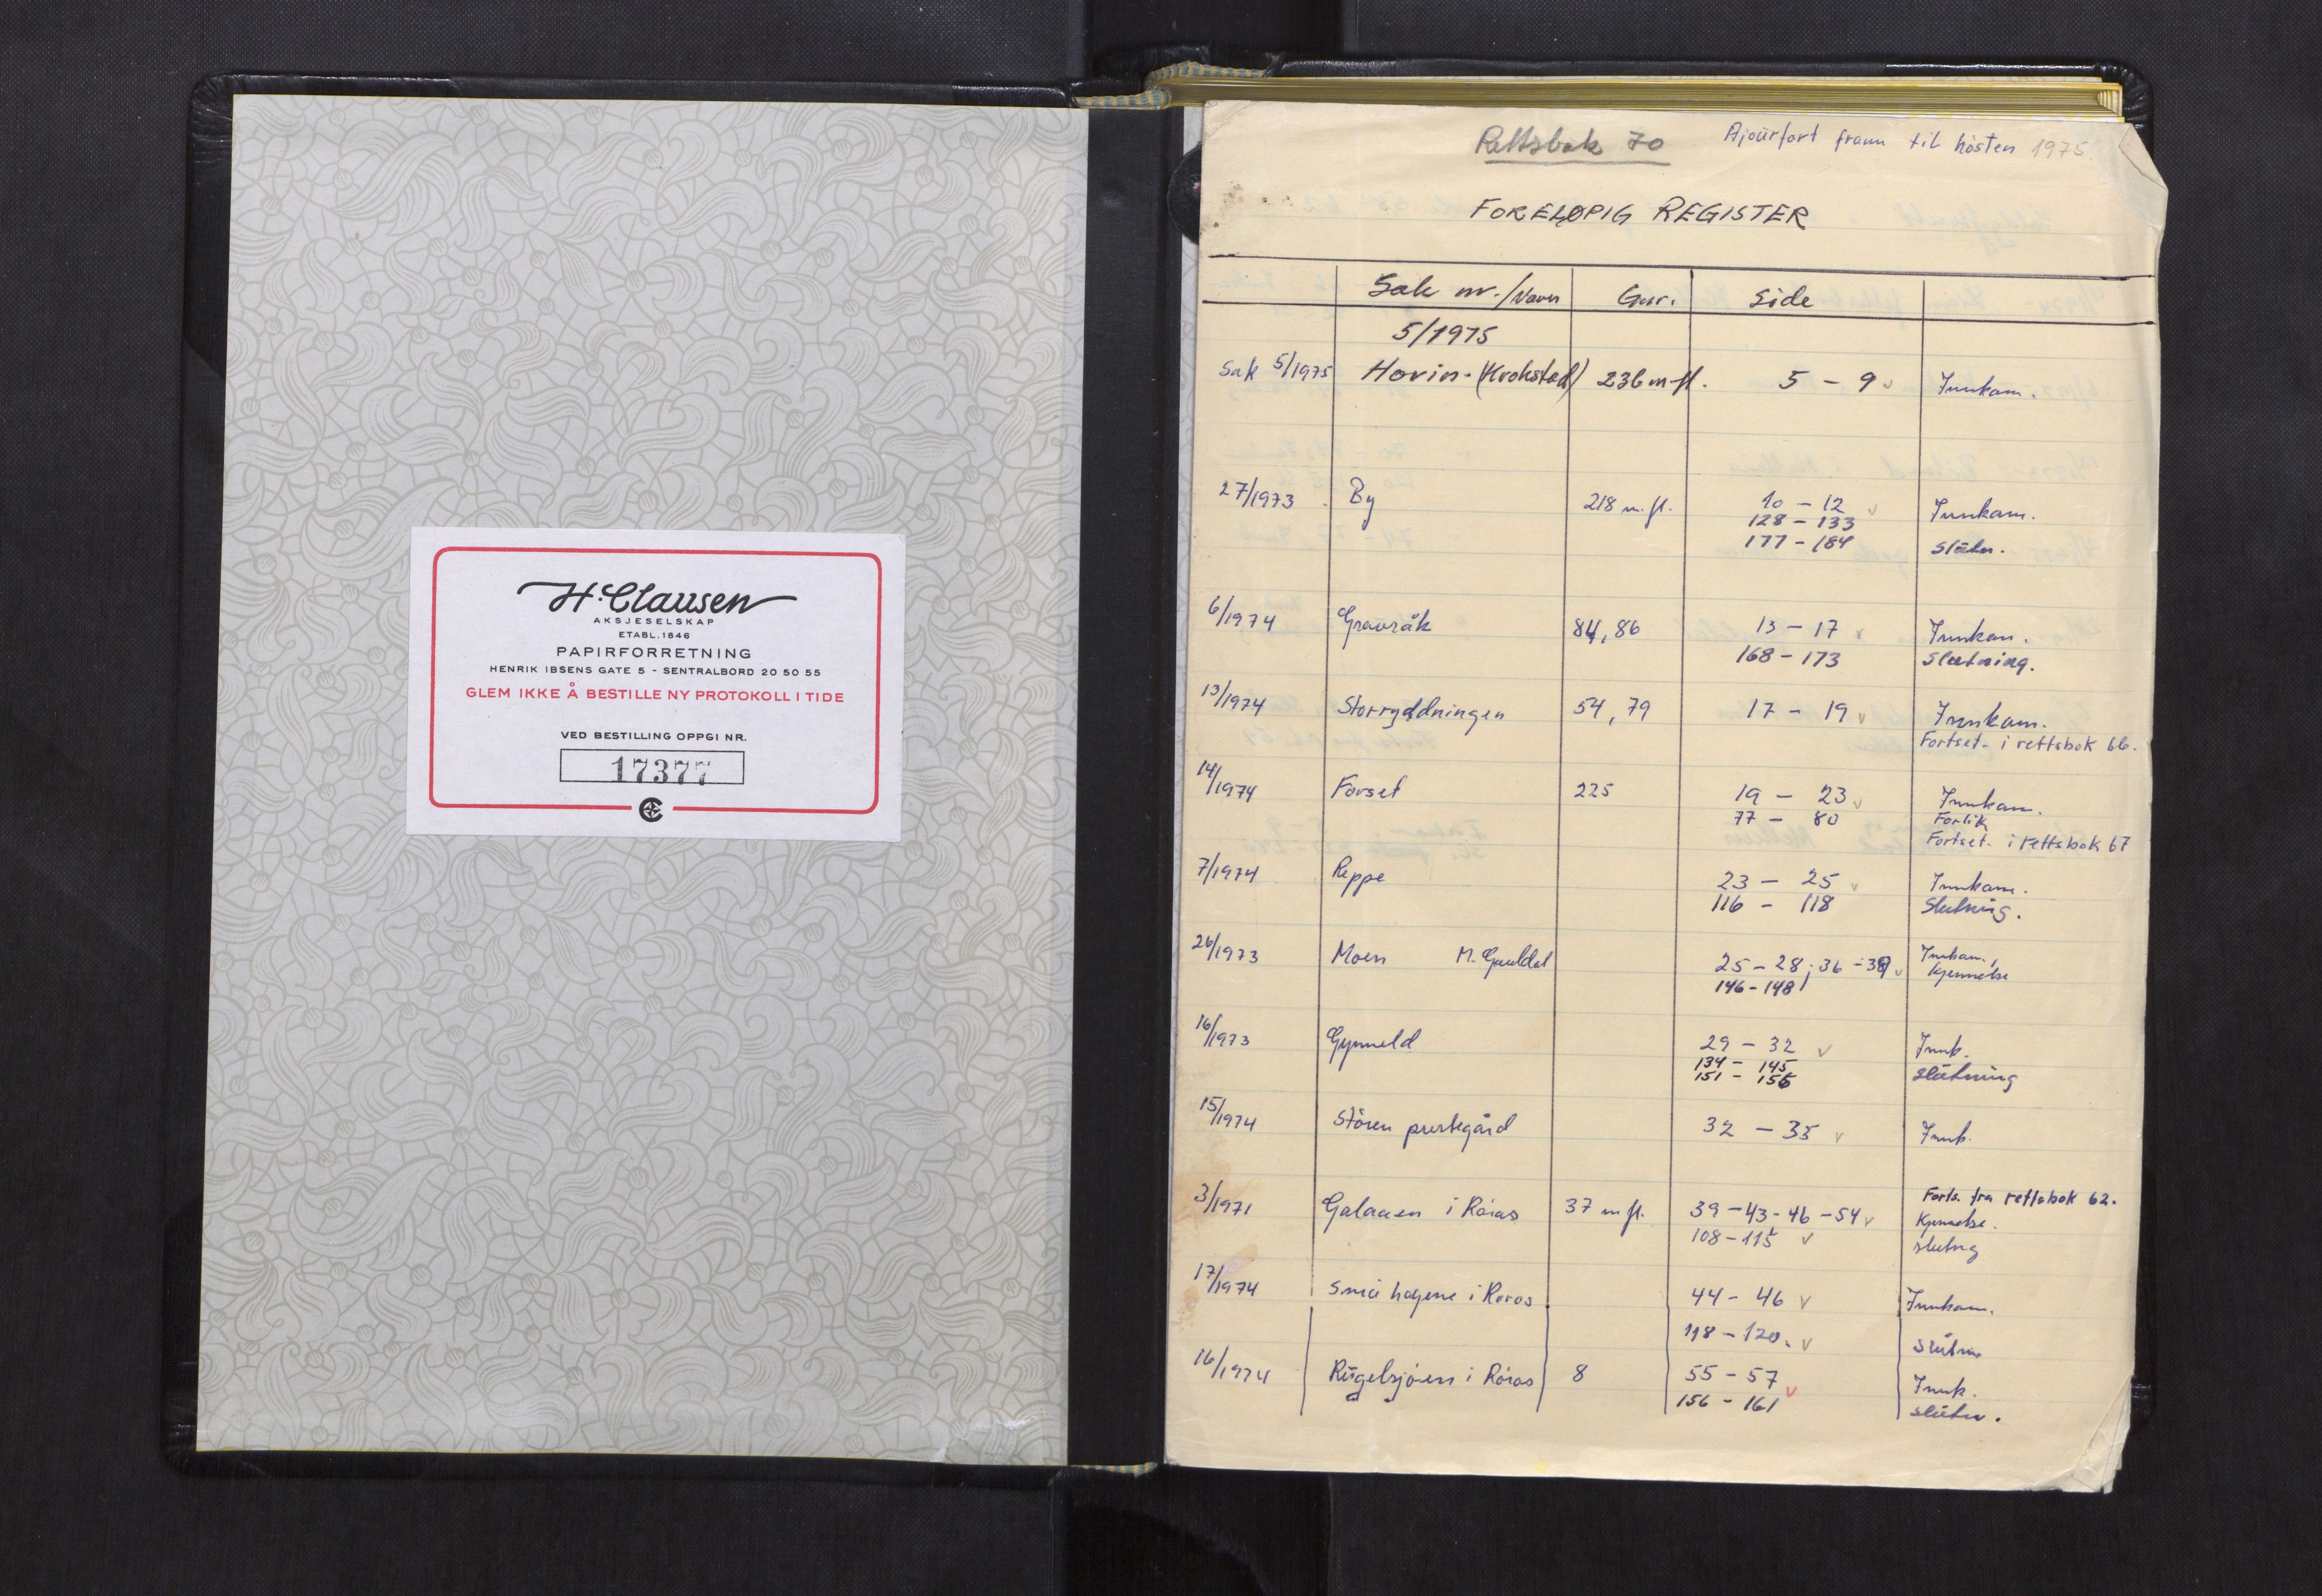 H. Clausen
AKSJESELSKAP
ETABL. 1846
PAPIRFORRETNING
HENRIK IBSENS GATE 5 - SENTRALBORD 20 50 55
GLEM IKKE Å BESTILLE NY PROTOKOLL I TIDE
VED BESTILLING OPPGI NR.
17377
Rettsbok 70 Ajourført fram til hösten 1975.
FORELØPIG REGISTER
Sak nr./Navn Gnr. Side
5/1975
Sak 5/1975 Hovin - (Krokstad) 236 m fl. 5 - 9 Innkam.
27/1973 By 218 m. fl. 10 - 12 Innkam.
128 - 133
177 - 184 Slutn.
6/1974 Gravråk 84, 86 13 - 17 Innkam.
168 - 173 Slutning.
13/1974 Storryddningen 54, 79 17 - 19 Innkam.
Fortset. i rettsbok 66.
14/1974 Forset 225 19 - 23 Innkam.
77 - 80 Forlik
Fortset. i rettsbok 67
7/1974 Reppe 23 - 25 Innkam.
116 - 118 Slutning.
26/1973 Moen M. Gauldal 25 - 28; 36 - 39 Innkam.,
146 - 148 Kjennelse
16/1973 Gynneld 29 - 32 Innk.
134 - 145 Slutning
151 - 156
15/1974 Stören prestegård 32 - 35 Innk.
Forts. fra rettsbok 62.
3/1971 Galaaen i Röros 37 m fl. 39 - 43 - 46 - 54 Kjennelse.
108 - 115 slutng
17/1974 Småhagene i Röros 44 - 46 Innkam.
118 - 120. Slutn.
16/1974 Rugelsjöen i Röros 8 55 - 57 Innk.
156 - 161 slutn.